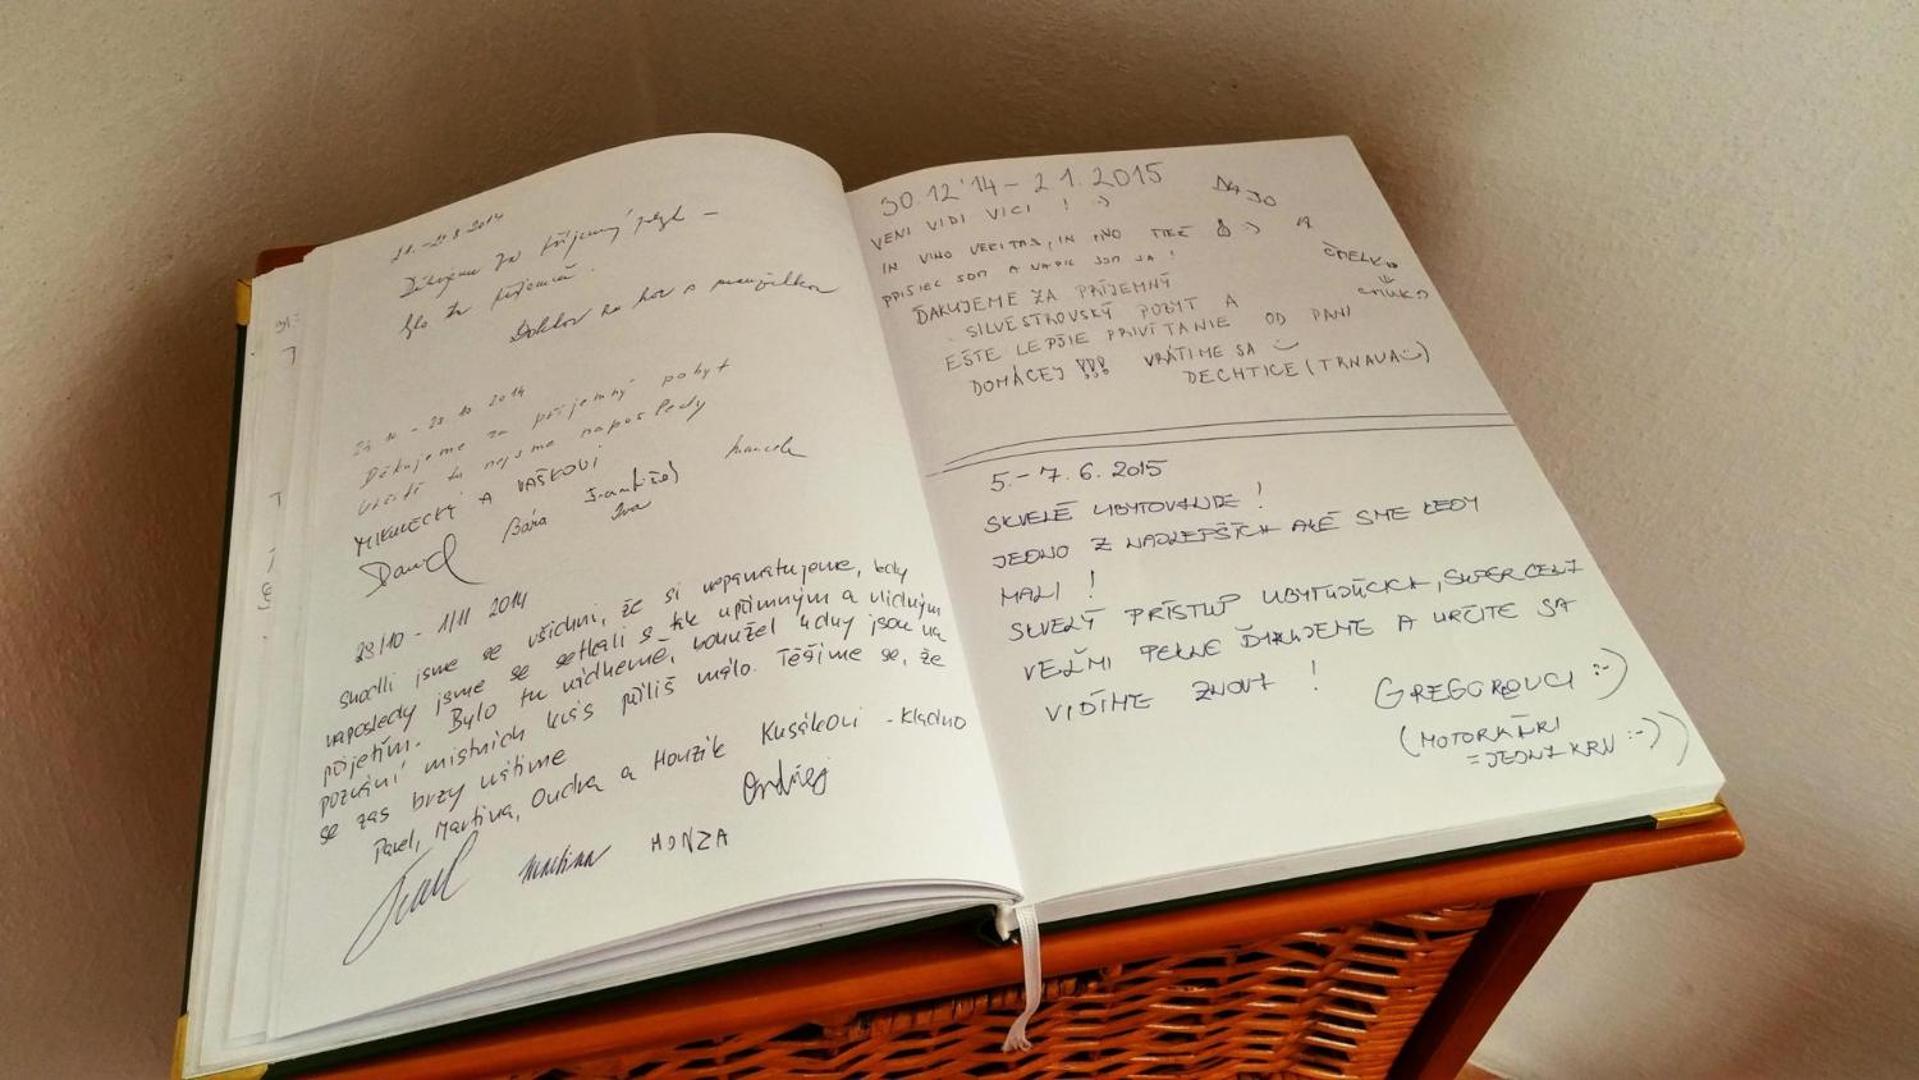 Děkujeme za příjemný
23 10 - 28 10 2014
Děkujeme za příjemný pobyt
určitě tu nejsme naposledy
MIKULECKÝ A VAŠKOVI
David Bára František Iva
29/10 - 1/11 2014
shodli jsme se všichni, že si nepamatujeme, kdy
naposledy jsme se setkali s tak upřímným a vlídným
přijetím. Bylo tu nádherně, bohužel 4 dny jsou na
poznání místních krás příliš málo. Těšíme se, že
se zas brzy vrátíme
Pavel, Martina, Ondra a Honzík Kusákovi - Kladno
Ondřej
Pavel Martina HONZA
30.12 '14 - 2 1. 2015
VENI VIDI VICI ! :)
IN VINO VERITAS, IN PIVO TIEŽ
PRIŠIEL SOM A VYPIL SOM JA !
ĎAKUJEME ZA PRÍJEMNÝ
SILVESTROVSKÝ POBYT A
EŠTE LEPŠIE PRIVÍTANIE OD PANI
DOMÁCEJ !!! VRÁTIME SA
DECHTICE (TRNAVA)
5. - 7. 6. 2015
SKVELÉ UBYTOVANIE !
JEDNO Z NAJLEPŠÍCH AKÉ SME KEDY
MALI !
SKVELÝ PRÍSTUP UBYTUJÚCICH, SUPER CENY
VEĽMI PEKNE ĎAKUJEME A URČITE SA
VIDÍME ZNOVA !
GREGOROVCI :-)
(MOTORKÁRI
= JEDNA KRV :-))